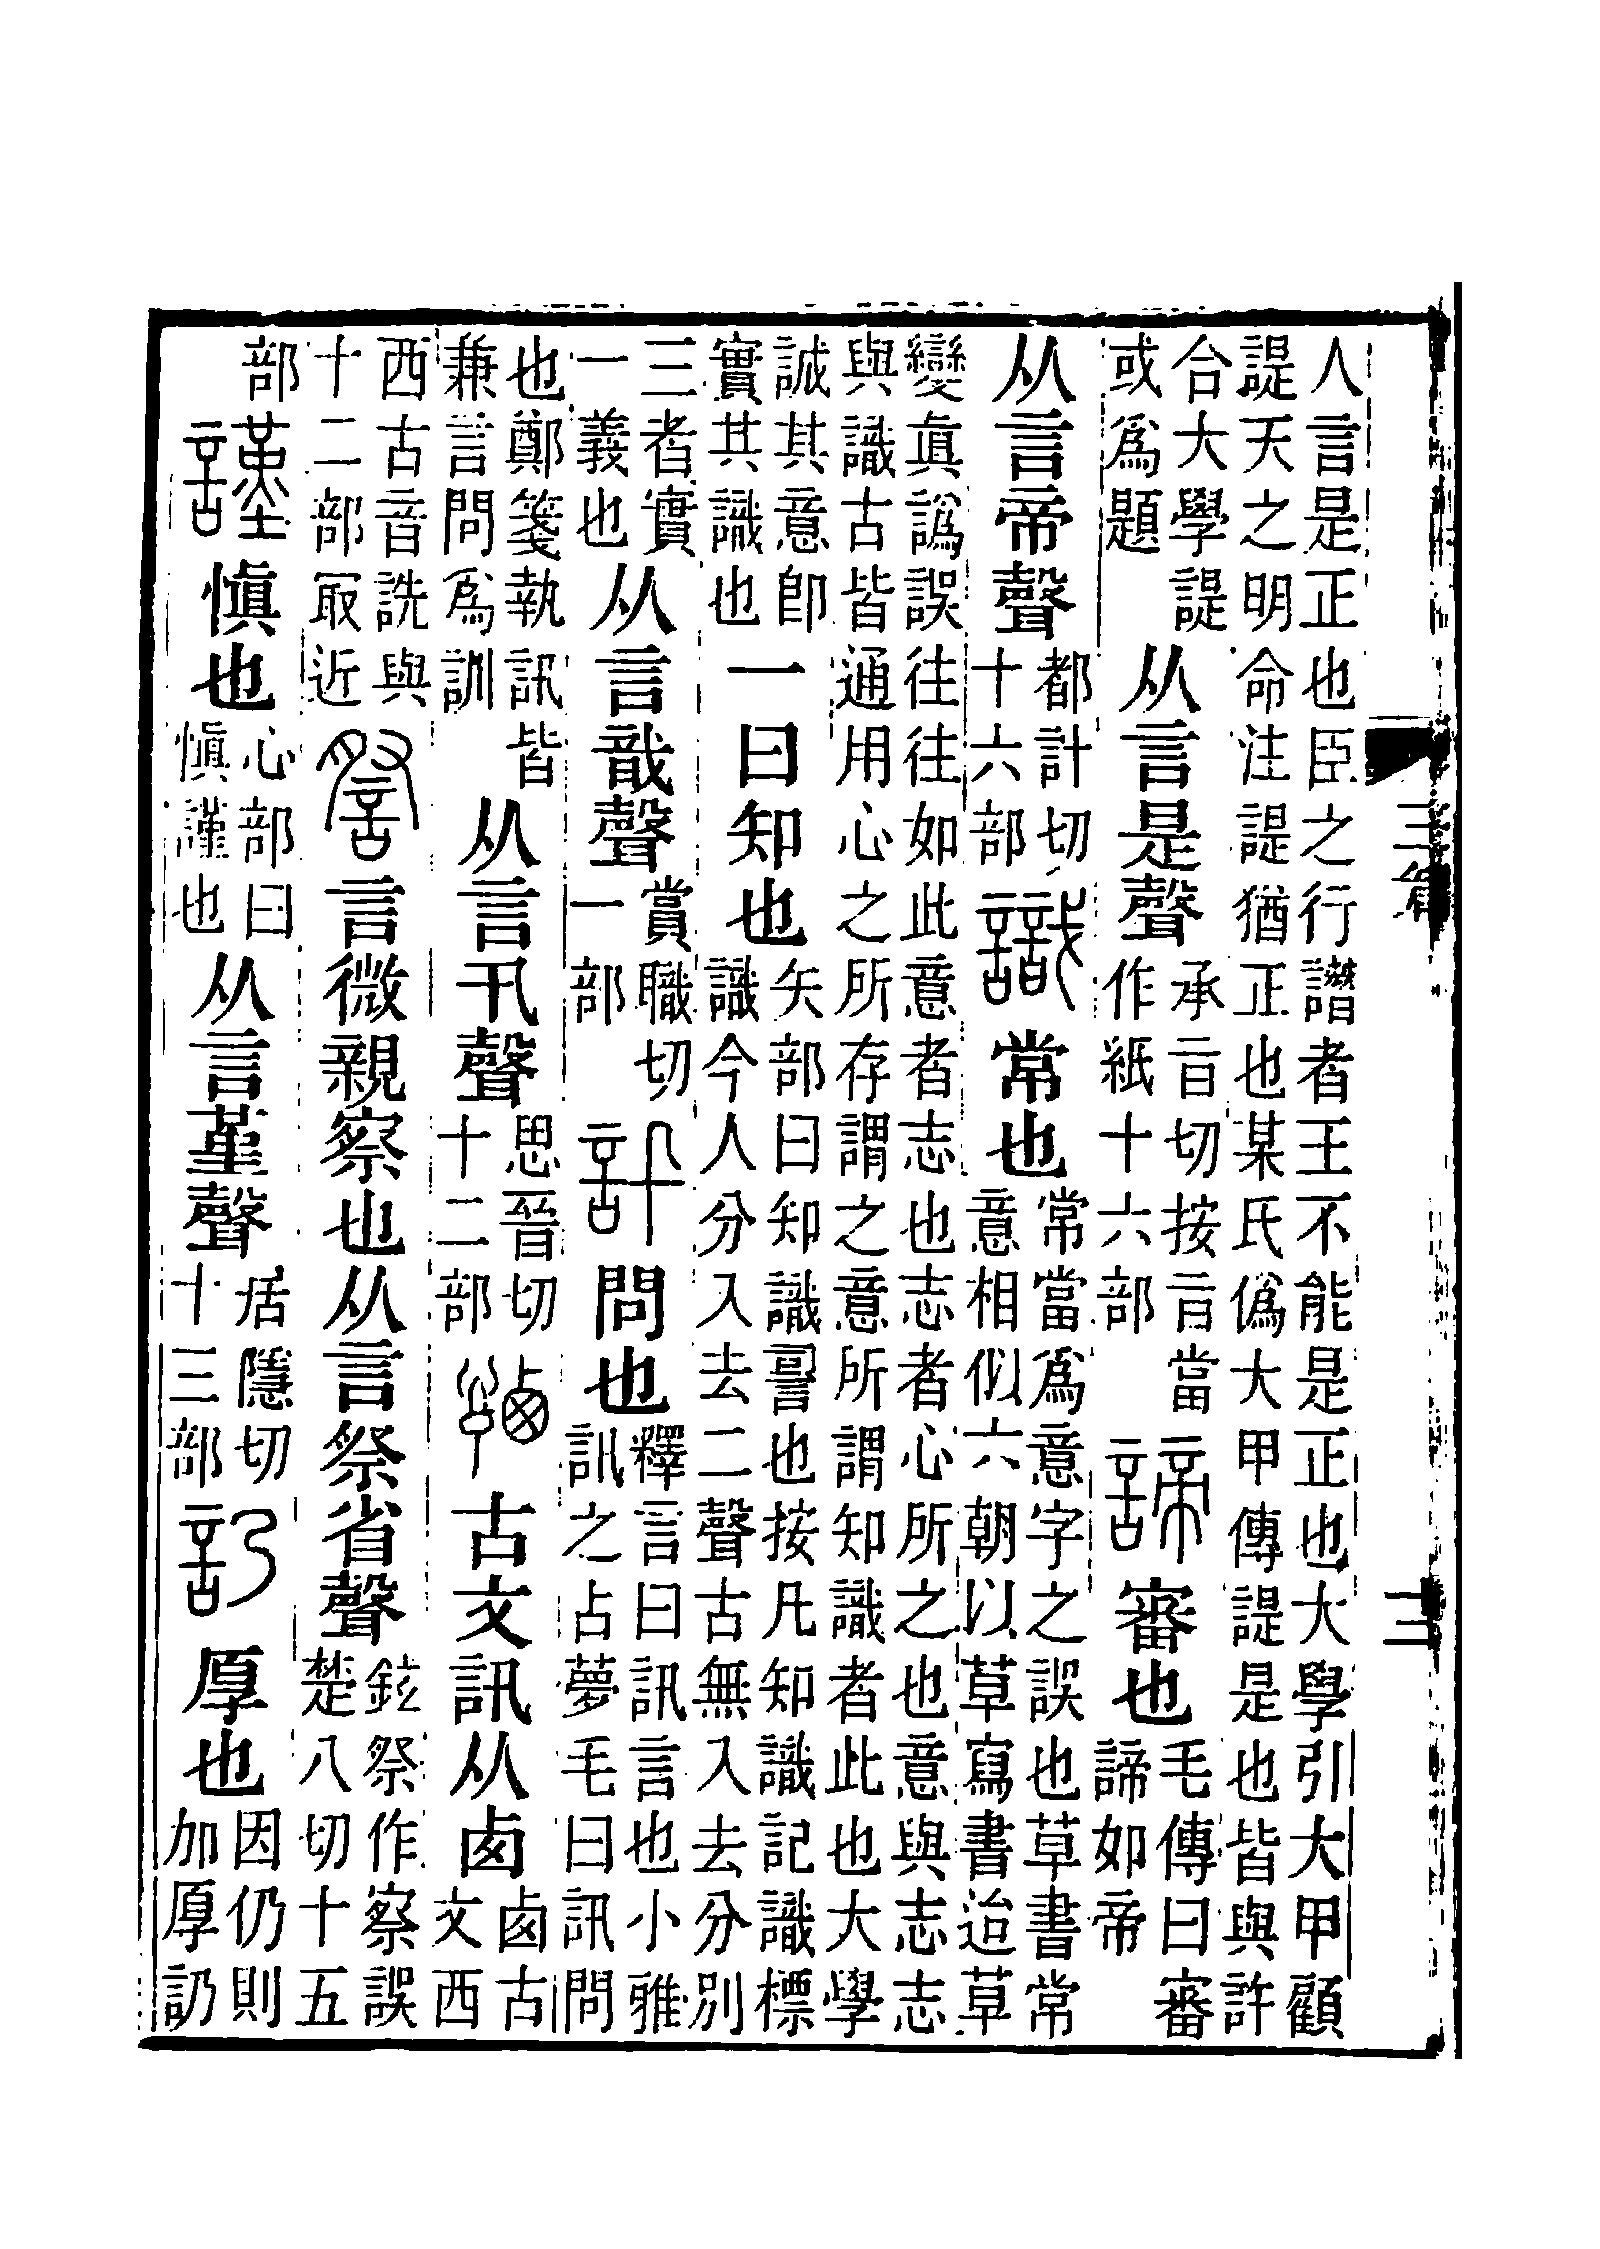 人言是正也臣之行譖者王不能是正也大學引大甲顧
諟天之明命注諟猶正也某氏僞大甲傳諟是也皆與許
合大學諟或爲題从言是聲承旨切按旨當作紙十六部諦審也毛傳曰審諦如帝
从言帝聲都計切十六部識常也常當爲意字之誤也草書常意相似六朝以草寫書迨草
變眞譌誤往往如此意者志也志者心所之也意與志志
與識古皆通用心之所存謂之意所謂知識者此也大學
誠其意卽實其識也一曰知也矢部曰知識䛐也按凡知識記識標識今人分入去二聲古無入去分別
三者實一義也从言戠聲賞職切一部訊問也釋言曰訊言也小雅訊之占夢毛曰訊問
也鄭箋執訊皆兼言問爲訓从言卂聲思晉切十二部古文訊从卥卥古文西
西古音詵與十二部冣近詧言微親察也从言祭省聲鉉祭作察誤楚八切十五
部謹愼也心部曰愼謹也从言堇聲居隱切十三部訒厚也因仍則加厚訒
三篇
三